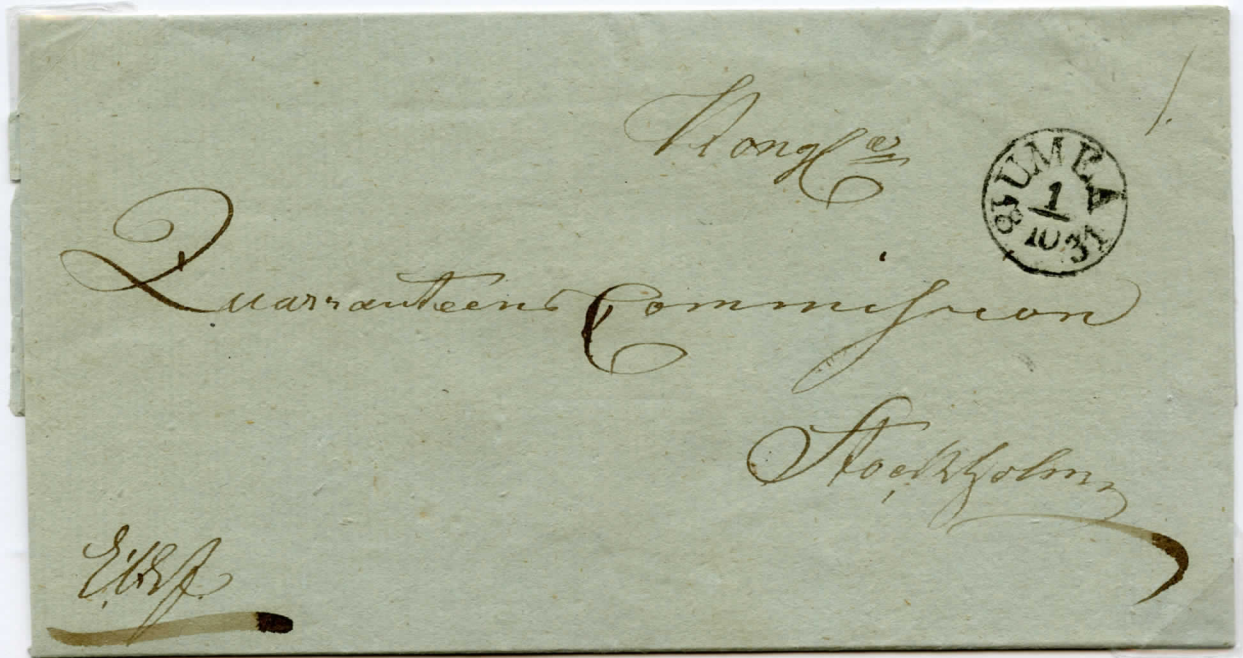 Kongl er
UMEA
1
10
1831
Quarranteens Commission
Stockholm